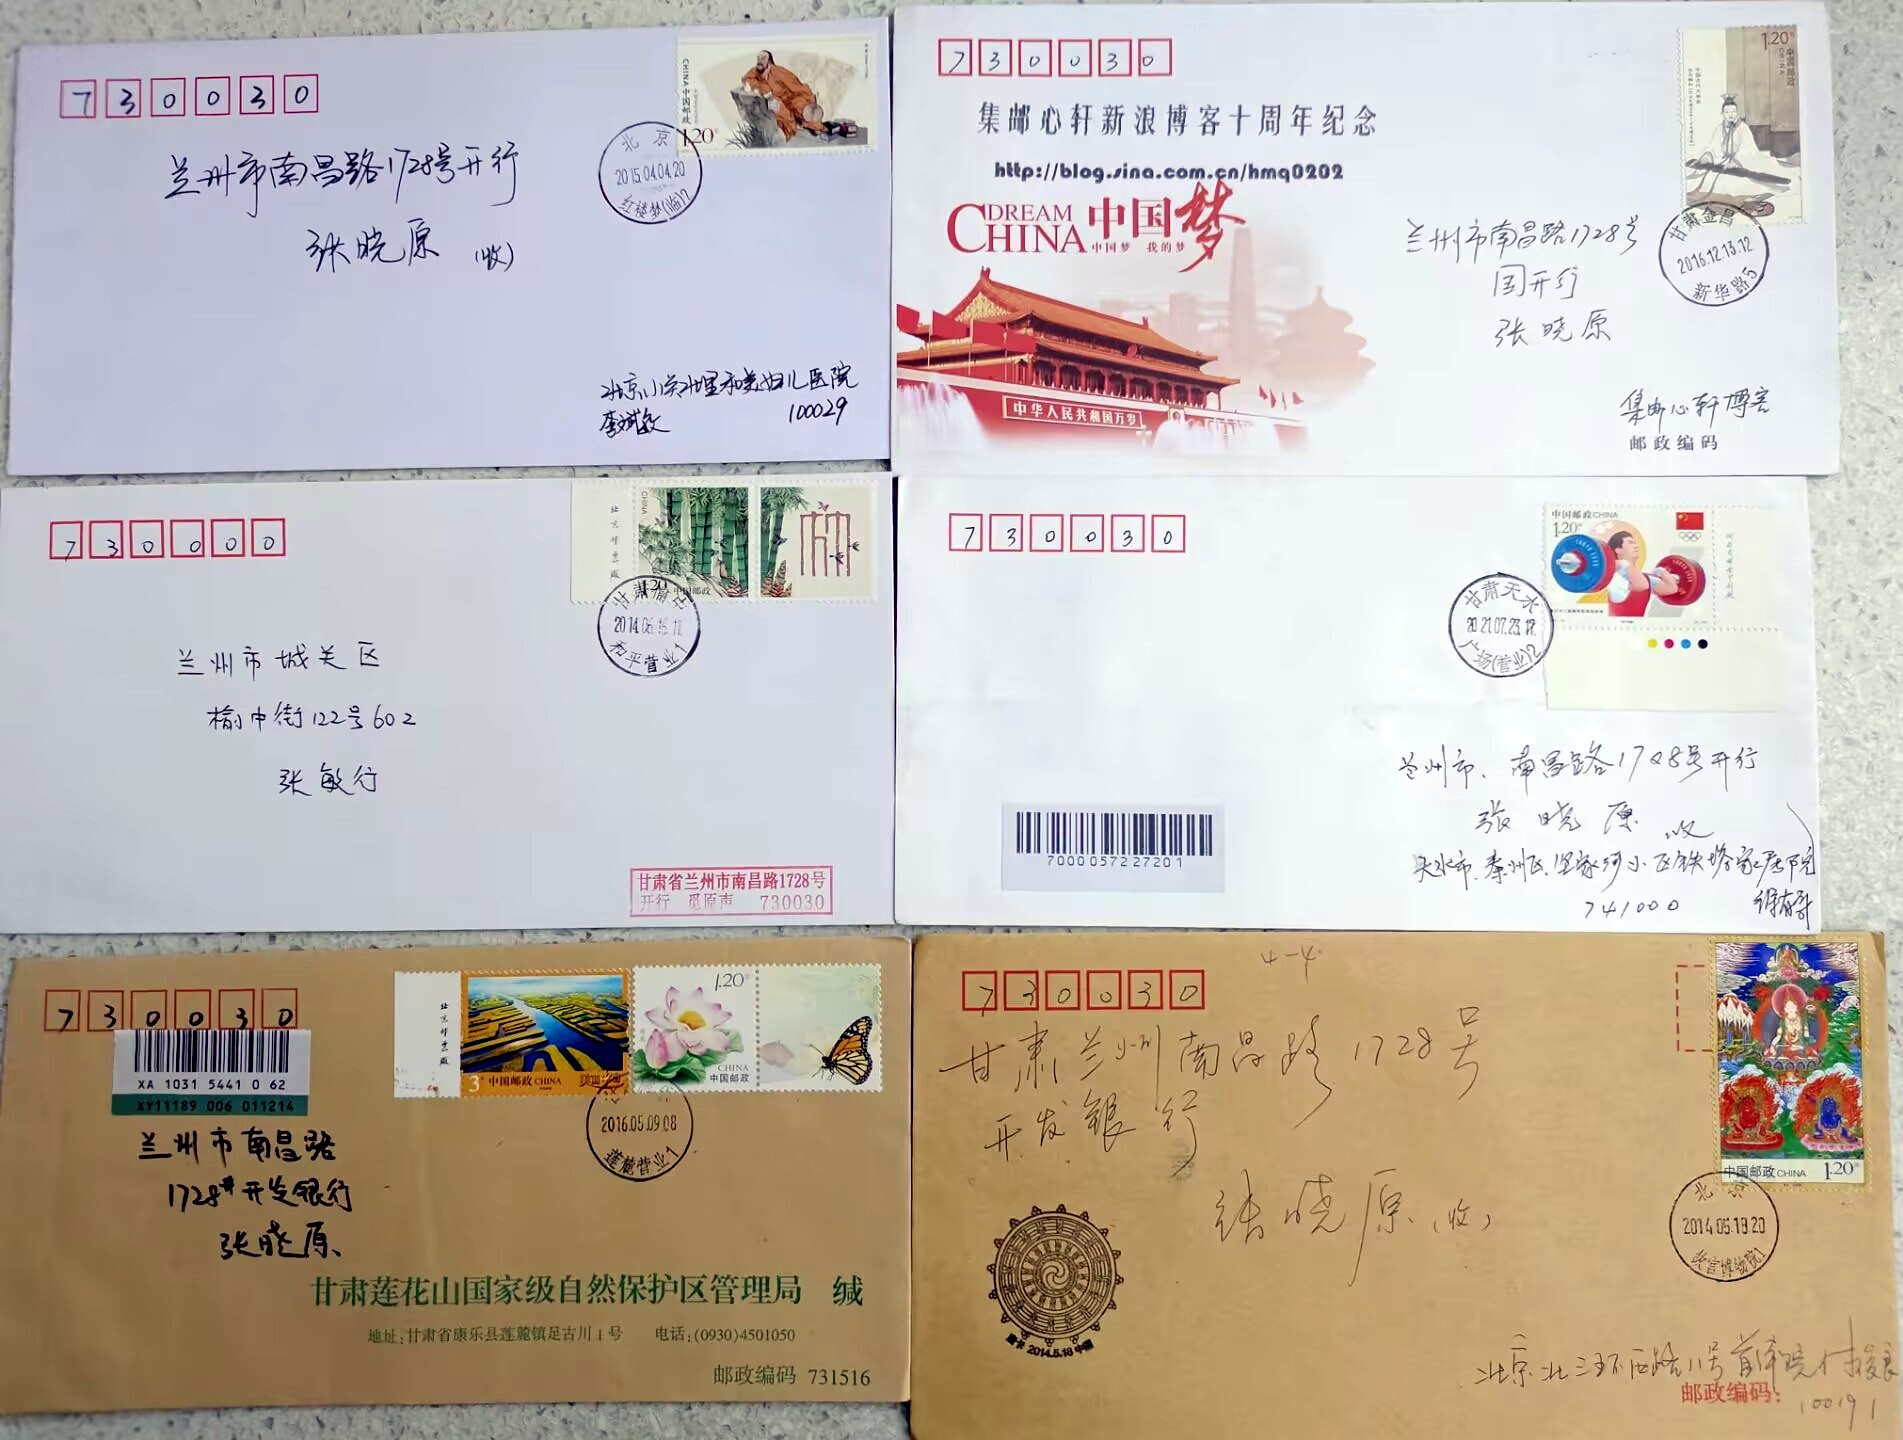 730030
CHINA 中国邮政
1.20
北京
2015.04.04.20
红楼梦(临)7
兰州市南昌路1728号开行
张晓原 (收)
北京小关北里和美妇儿医院
100029
730030
集邮心轩新浪博客十周年纪念
http://blog.sina.com.cn/hmq0202
DREAM
CHINA
中国梦
中国梦 我的梦
中华人民共和国万岁
1.20
中国邮政
甘肃金昌
2016.12.13.12
新华路5
兰州市南昌路1728号
国开行
张晓原
集邮心轩博客
邮政编码
730000
北京邮票厂
CHINA
1.20
中国邮政
甘肃榆中
和平营业1
兰州市城关区
榆中街122号602
张敏行
甘肃省兰州市南昌路1728号
开行 觅原声 730030
730030
中国邮政 CHINA
1.20
甘肃天水
2021.07.23.17
广场(营业)2
兰州市、南昌路1728号开行
张晓原 收
7000057227201
741000
730030
XA 1031 5441 0 62
XY11189 006 011214
北京邮票厂
3
中国邮政 CHINA
1.20
CHINA
中国邮政
2016.05.09.08
莲麓营业1
兰州市南昌路
1728#开发银行
张晓原
甘肃莲花山国家级自然保护区管理局 缄
地址:甘肃省康乐县莲麓镇足古川1号 电话:(0930)4501050
邮政编码 731516
4-4
730030
中国邮政 CHINA 1.20
北京
2014.05.18.20
故宫博物院1
甘肃兰州南昌路1728号
开发银行
张晓原 (收)
2014.5.18 中国
北京北三环西路11号首体院
邮政编码:
100191